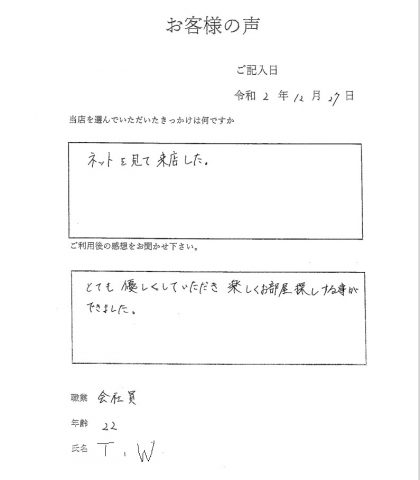 お客様の声
ご記入日
令和 2 年 12 月 27 日
当店を選んでいただいたきっかけは何ですか
ネットを見て来店した。
ご利用後の感想をお聞かせ下さい。
とても優しくしていただき楽しくお部屋探しする事が
できました。
職業 会社員
年齢 22
氏名 T.W